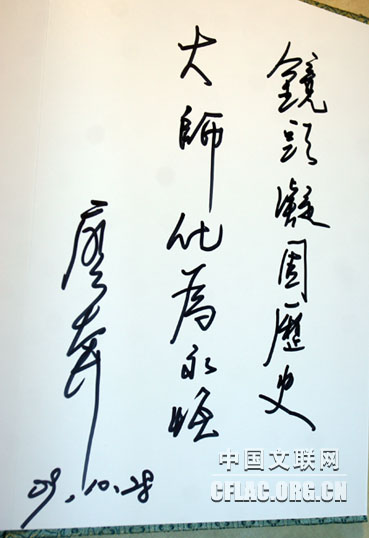 鏡頭凝固歷史
大師化為永恆
廖奔
09.10.28
中国文联网
CFLAC.ORG.CN